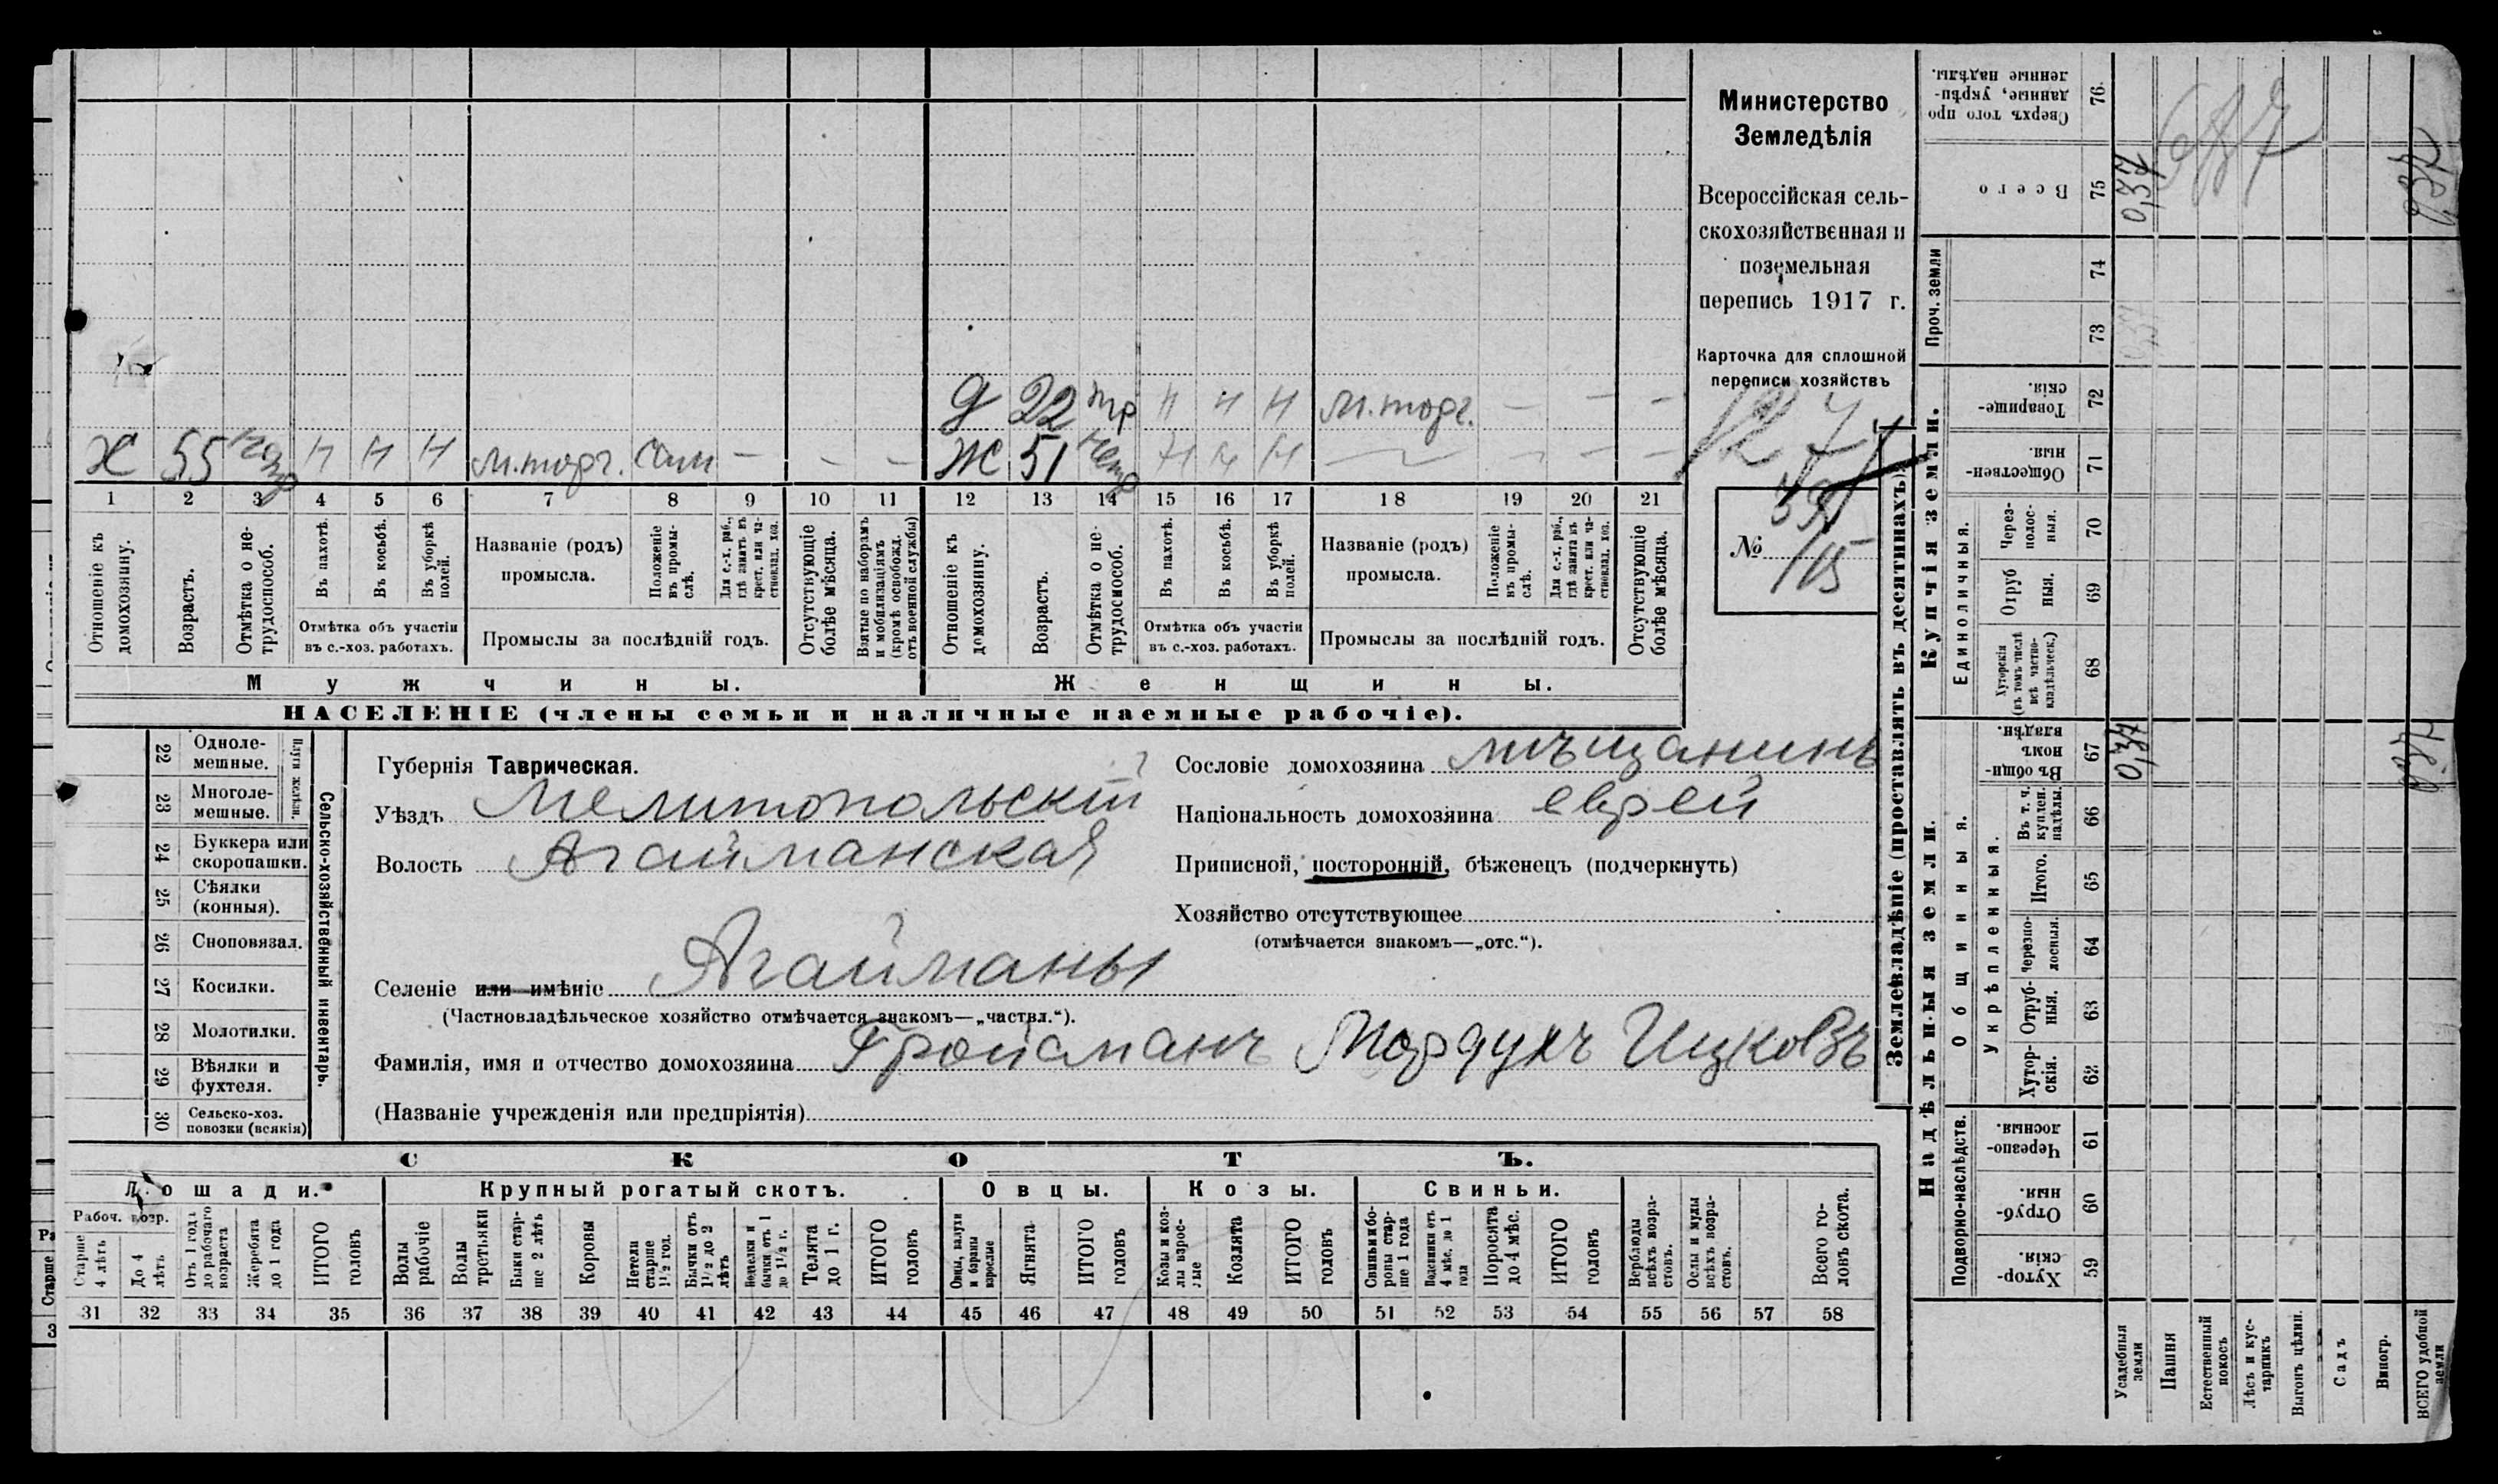 Министерство
Земледѣлія
Всероссійская сель-
скохозяйственная и
поземельная
перепись 1917 г.
Карточка для сплошной
переписи хозяйствъ
№ 115
д 22 тр н н н м.торг. — — —
х 55 н н н м.торг. сам — — —
ж 51 нетр н н н — — — —
1 2 3 4 5 6 7 8 9 10 11 12 13 14 15 16 17 18 19 20 21
Отношеніе къ домохозяину.
Возрастъ.
Отмѣтка о не-трудоспособ.
Въ пахотѣ.
Въ косьбѣ.
Въ уборкѣ полей.
Отмѣтка объ участіи
въ с.-хоз. работахъ.
Названіе (родъ)
промысла.
Положеніе въ промы-слѣ.
Для с.-х. раб., гдѣ занятъ въ крест. или ча-стновлад. хоз.
Промыслы за послѣдній годъ.
Отсутствующіе болѣе мѣсяца.
Взятые по наборамъ и мобилизаціямъ (кромѣ освобожд. отъ военной службы)
Отношеніе къ домохозяину.
Возрастъ.
Отмѣтка о не-трудоспособ.
Въ пахотѣ.
Въ косьбѣ.
Въ уборкѣ полей.
Отмѣтка объ участіи
въ с.-хоз. работахъ.
Названіе (родъ)
промысла.
Положеніе въ промы-слѣ.
Для с.-х. раб., гдѣ занята въ крест. или ча-стновлад. хоз.
Промыслы за послѣдній годъ.
Отсутствующіе болѣе мѣсяца.
Мужчины.
Женщины.
НАСЕЛЕНІЕ (члены семьи и наличные наемные рабочіе).
Сельско-хозяйственный инвентарь.
Плуги желѣзн.
22 Одноле-мешные.
23 Многоле-мешные.
24 Буккера или скоропашки.
25 Сѣялки (конныя).
26 Сноповязал.
27 Косилки.
28 Молотилки.
29 Вѣялки и фухтеля.
30 Сельско-хоз. повозки (всякія)
Губернія Таврическая.
Уѣздъ Мелитопольскій
Волость Агайманская
Сословіе домохозяина мѣщанинъ
Національность домохозяина еврей
Приписной, посторонній, бѣженецъ (подчеркнуть)
Хозяйство отсутствующее
(отмѣчается знакомъ—„отс.“).
Селеніе или имѣніе Агайманы
(Частновладѣльческое хозяйство отмѣчается знакомъ—„частвл.“).
Фамилія, имя и отчество домохозяина Гройсманъ Мордухъ Ицковъ
(Названіе учрежденія или предпріятія)
СКОТЪ.
Лошади.
Рабоч. возр.
Старше 4 лѣтъ
До 4 лѣтъ
Отъ 1 года до рабочаго возраста
Жеребята до 1 года
ИТОГО головъ
Крупный рогатый скотъ.
Волы рабочіе
Волы третьяки
Быки стар-ше 2 лѣтъ
Коровы
Нетели старше 1½ год.
Бычки отъ 1½ до 2 лѣтъ
Телки и бычки отъ 1 до 1½ г.
Телята до 1 г.
ИТОГО головъ
Овцы.
Овцы, валухи и бараны взрослые
Ягнята
ИТОГО головъ
Козы.
Козы и коз-лы взрос-лые
Козлята
ИТОГО головъ
Свиньи.
Свиньи и бо-ровы стар-ше 1 года
Подсвинки отъ 4 мѣс. до 1 года
Поросята до 4 мѣс.
ИТОГО головъ
Верблюды всѣхъ возра-стовъ.
Ослы и мулы всѣхъ возра-стовъ.
Всего го-ловъ скота.
31 32 33 34 35 36 37 38 39 40 41 42 43 44 45 46 47 48 49 50 51 52 53 54 55 56 57 58
Землевладѣніе (проставлять въ десятинахъ).
Надѣльныя земли.
Подворно-наслѣдств.
Хутор-скія. 59
Отруб-ныя. 60
Черезпо-лосныя. 61
Общинныя.
Укрѣпленныя.
Хутор-скія. 62
Отруб-ныя. 63
Черезпо-лосныя. 64
Итого. 65
Въ т. ч. куплен. надѣлы. 66
Въ общин-номъ владѣн. 67
Купчія земли.
Единоличныя.
Хуторскія (въ томъ числѣ всѣ частно-владѣльческ.) 68
Отруб ныя. 69
Через-полос-ныя. 70
Обществен-ныя. 71
Товарище-скія. 72
Проч. земли
73
74
Всего 75
Сверхъ того про-данные, укрѣп-ленные надѣлы. 76.
Усадебныя земли
Пашня
Естественный покосъ
Лѣсъ и кус-тарникъ
Выгонъ цѣлин.
Садъ
Виногр.
ВСЕГО удобной земли
0,37
0,37